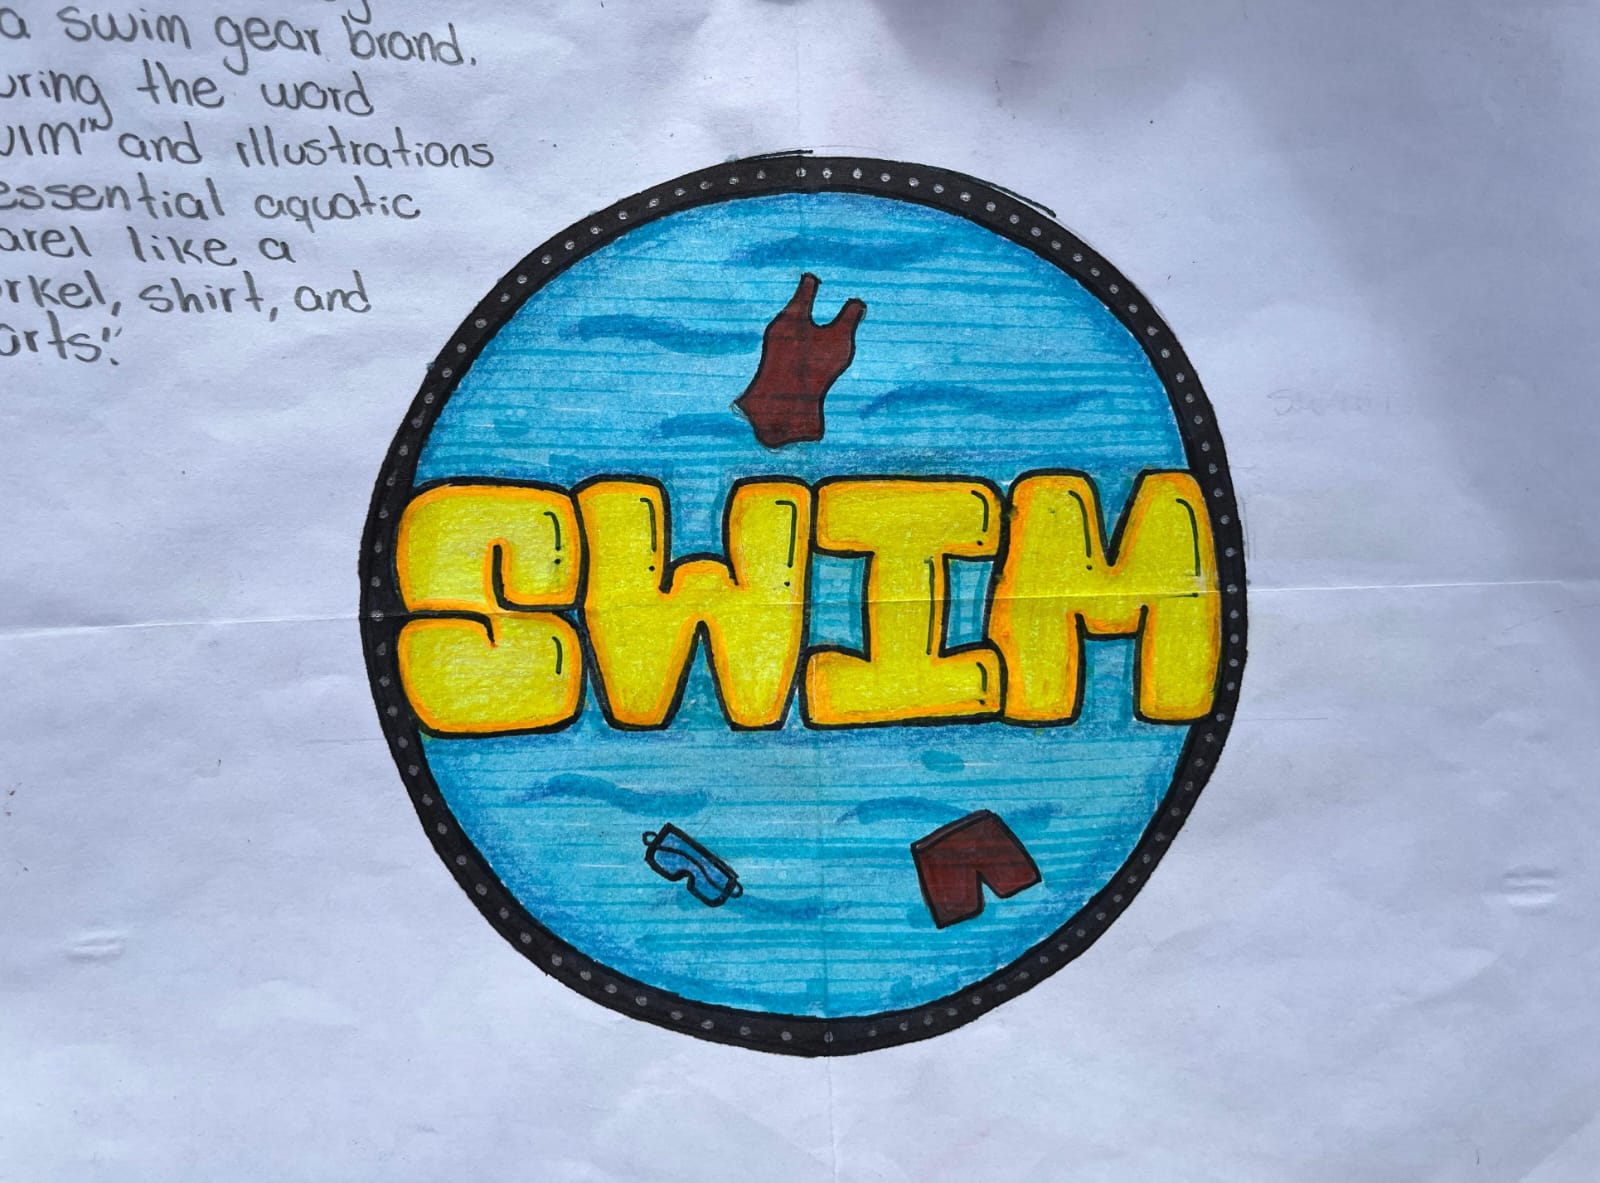 a swim gear brand.
uring the word
UIM" and illustrations
essential aquatic
arel like a
rkel, shirt, and
orts."
SWIM